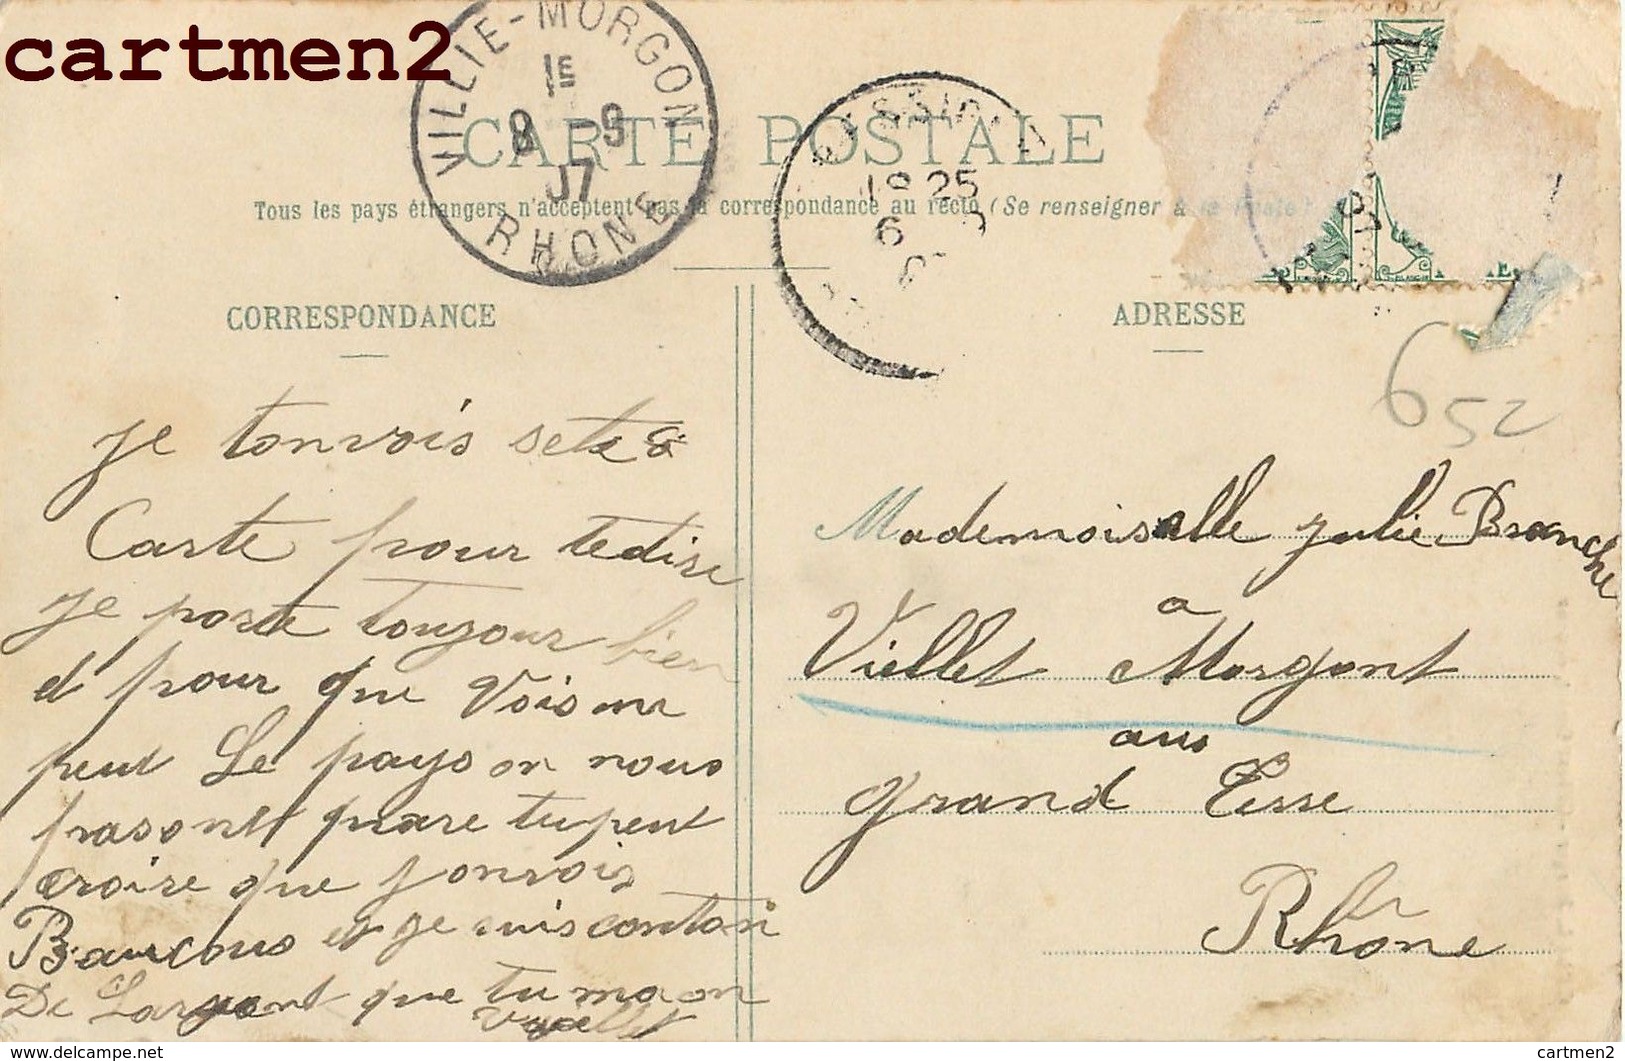 cartmen2
VILLIE-MORGON
1E
8 -9
07
RHONE
18 25
6
CARTE POSTALE
Tous les pays étrangers n'acceptent pas la correspondance au recto (Se renseigner à la Poste)
CORRESPONDANCE
ADRESSE
652
je tonvois sete
Carte pour tedire
je porte toujour bien
et pour que Vois
peut Le pays on nous
tupeut
croire que jonvois
Baucous et je suis contan
De Largent que tu ma on
Mademoiselle julie Branche
a
Viellet Morgont
aus
grand
Rhone
delcampe.net
cartmen2